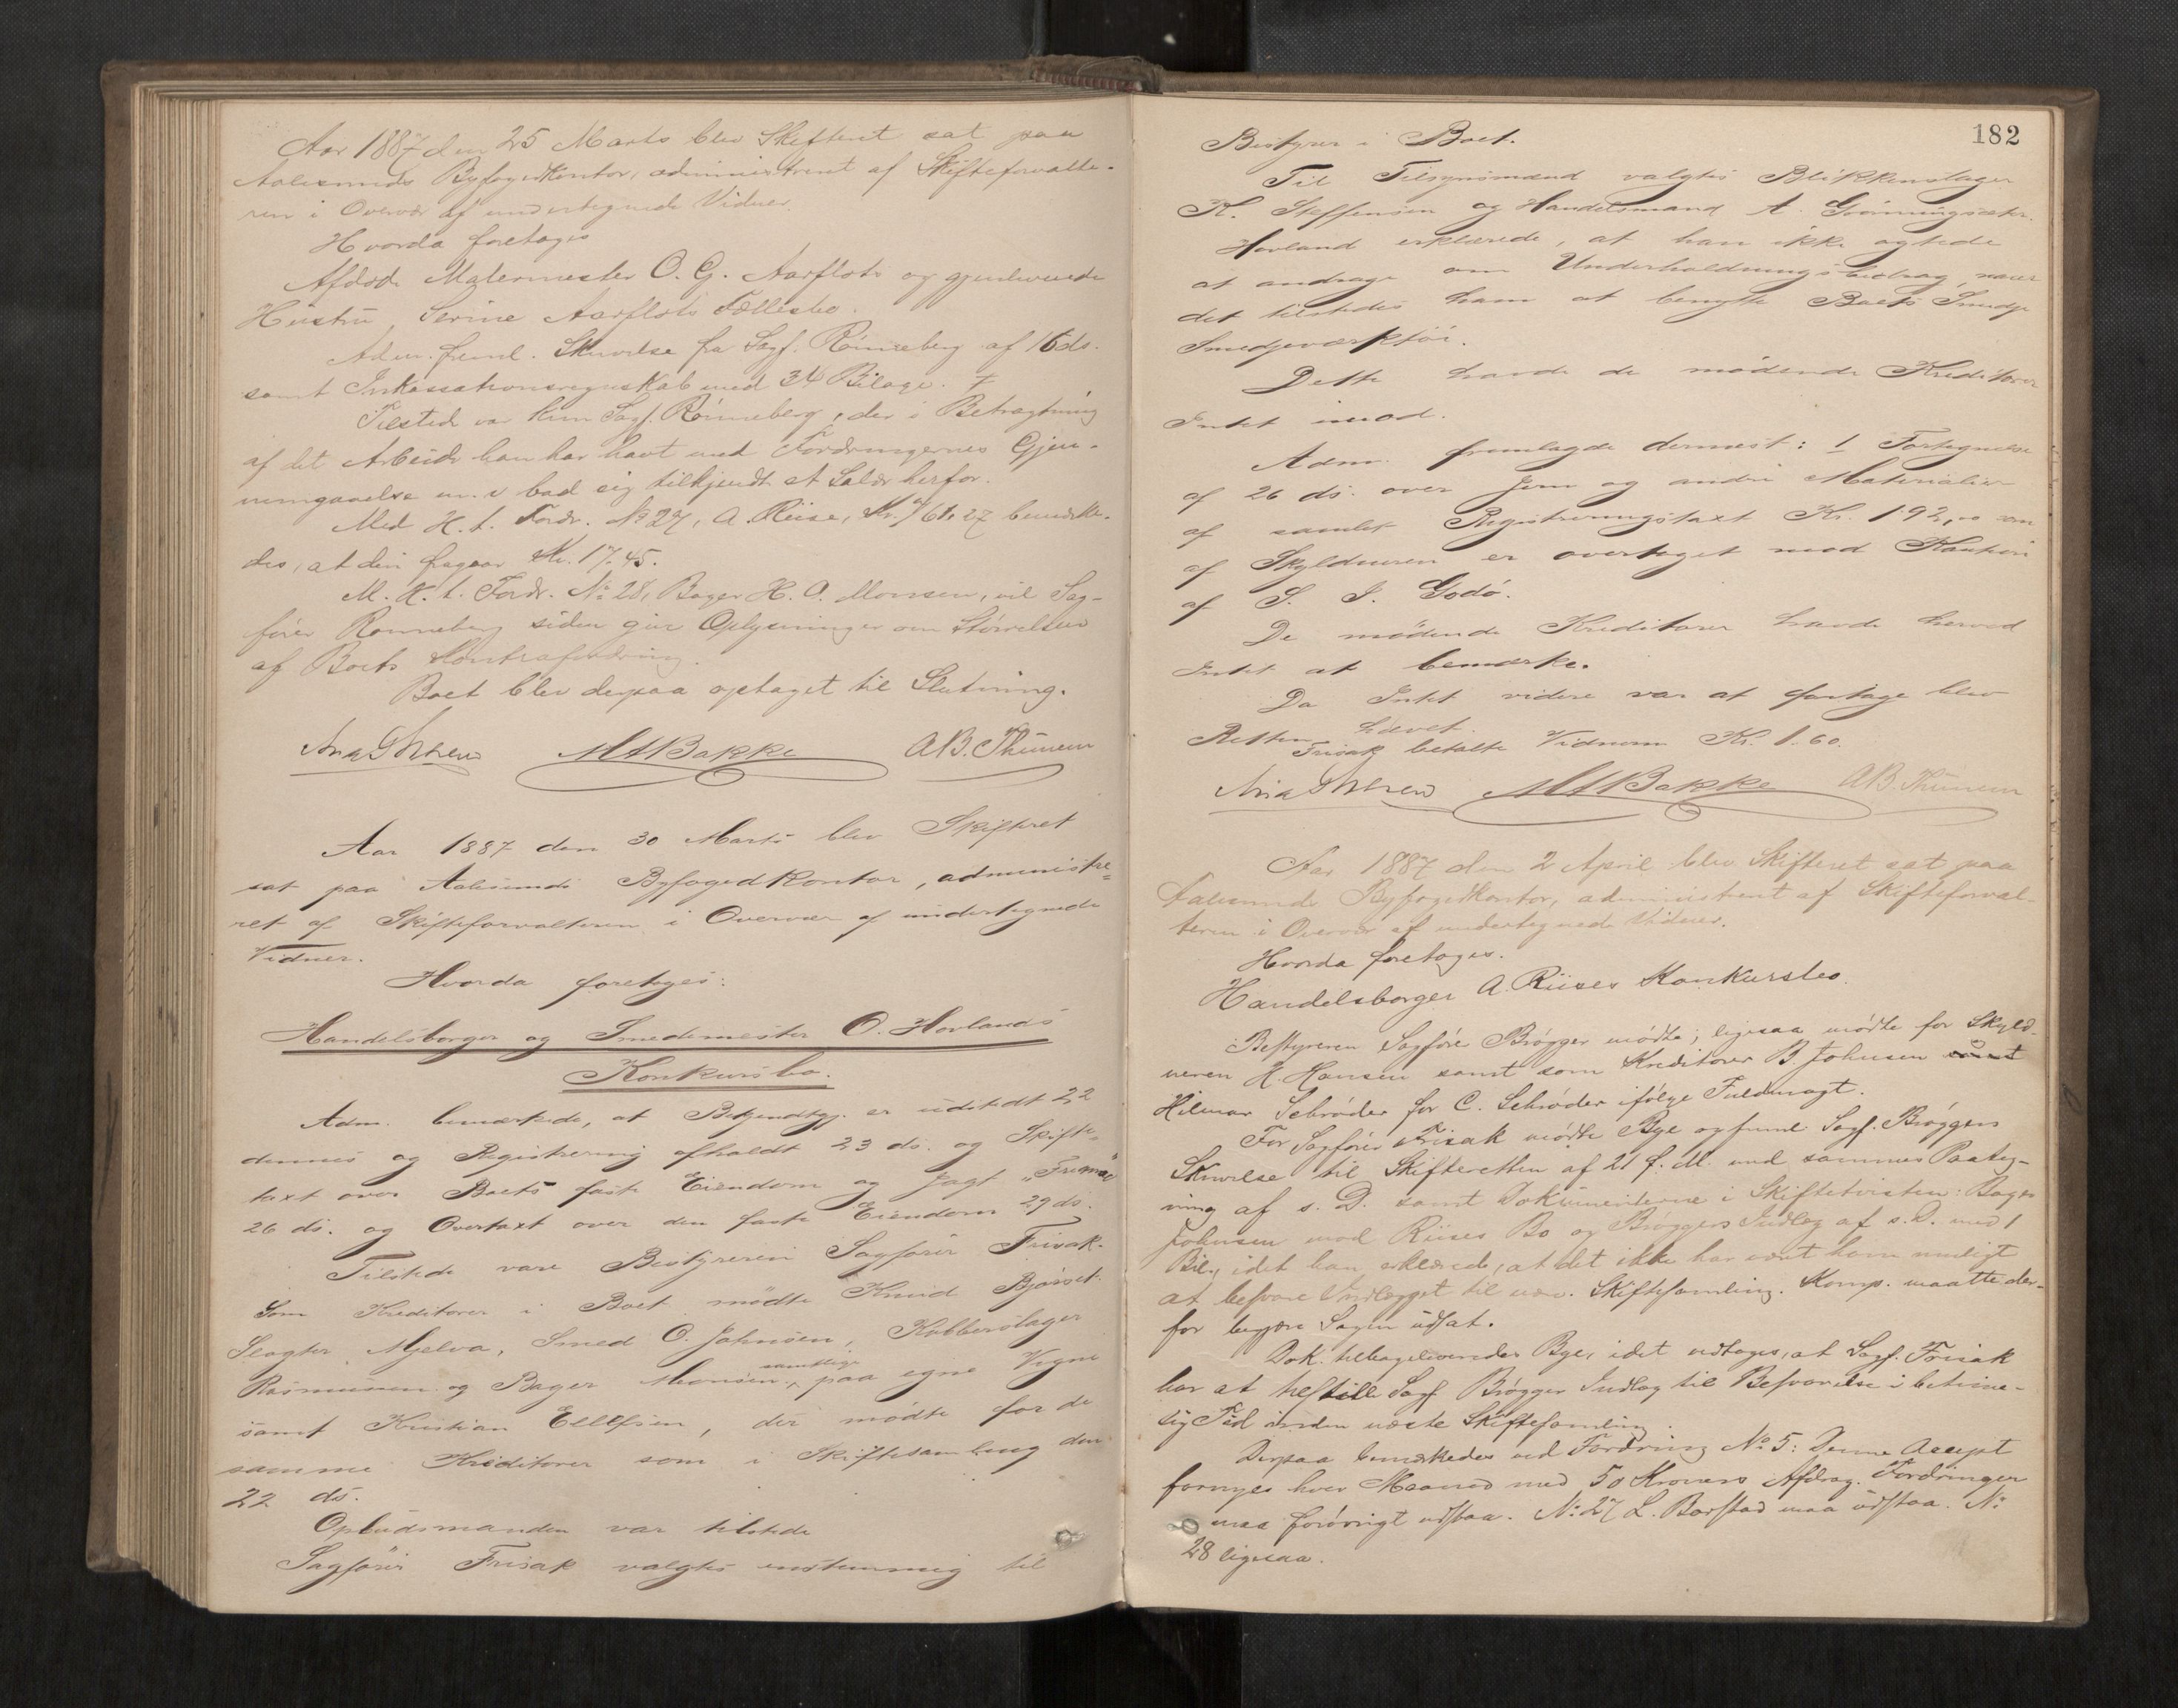 Aar 1887 den 25 Marts blev Skifteret sat paa
Aalesunds Byfogedkontor, administreret af Skifteforvalte-
ren i Overvær af undertegnede Vidner.
Hvorda foretoges
Afdøde Malermester O. G. Aarflots og gjenlevende
Hustru Serine Aarflots Fællesbo.
Adm. freml. Skrivelse fra Sagf. Rønneberg af 16 ds.
samt Inkassationsregnskab med 34 Bilage.
Tilstede var kun Sagf. Rønneberg, der i Betragtning
af det Arbeide han har havt med Fordringernes Gjen-
nemgaaelse m. v. bad sig tilkjendt et Salær herfor.
Med H. t. Fordr. No 27, A. Riise, Kr. 61,27 bemærke-
des, at den fragaar Kr. 17.45.
M. H. t. Fordr. No 28, Bager H. A. Monsen, vil Sag-
fører Rønneberg siden give Oplysninger om Størrelsen
af Boets Kontrafordring.
Boet blev derpaa optaget til Slutning.
MABakke A.B. Thunem
Aar 1887 den 30 Marts blev Skifteret
sat paa Aalesunds Byfogedkontor, administre=
ret af Skifteforvalteren i Overvær af undertegnede
Vidner.
Hvorda foretoges:
Handelsborger og Smedemester O. Hovlands
Konkursbo.
Adm. bemærkede, at Bekjendtgj. er udstedt 22
dennes og Registrering afholdt 23 ds. og Skifte=
taxt over Boets faste Eiendom og Jagt
26 ds. og Overtaxt over den faste Eiendom 29 ds.
Tilstede vare Bestyreren Sagfører Frisak.
Som Kreditorer i Boet mødte Knud Bjørset
Slagter Mjelva, Smed O. Johnsen, Kobberslager
Rasmussen og Bager Monsen, samtlige paa egne Vegne
samt Kristian Ellefsen, der mødte for de
samme Kreditorer som i Skiftesamling den
22 ds.
Opbudsmanden var tilstede
Sagfører Frisak valgtes enstemmig til
182
Bestyrer i Boet.
Til Tilsynsmænd valgtes Blikkenslager
K. Steffensen og Handelsmand A. Grønningsæter.
Hovland erklærede, at han ikke agtede
at andrage om Underholdningsbidrag, naar
det tilstedes ham at benytte Boets Smedje
Smedjeværktøi.
Dette havde de mødende Kreditorer
Intet imod.
Adm. fremlagde dernæst: 1 Fortegnelse
af 26 ds. over Jern og andre Materialier
af samlet Registreringstaxt Kr. 192,00 som
af Skyldneren er overtaget mod Kaution
af S. J. Godø.
De mødende Kreditorer havde herved
Intet at bemærke.
Da Intet videre var at foretage blev
Retten hævet.
Frisak betalte Vidnerne Kr. 1.60.
MABakke A.B. Thunem
Aar 1887 den 2 April blev Skifteret sat paa
Aalesunds Byfogedkontor, administreret af Skifteforval-
teren i Overvær af undertegnede Vidner.
Hvorda foretoges.
Handelsborger A. Riises Konkursbo.
Bestyreren Sagfører Brøgger mødte; ligesaa mødte for Skyld-
neren H. Hansen samt som Kreditorer B. Johnsen
Hilmar Schrøder for C. Schrøder ifølge Fuldmagt.
For Sagfører Frisak mødte Bye og freml. Sagf. Brøggers
Skrivelse til Skifteretten af 21 f. M. med sammes Paateg-
ning af s. D. samt Dokumenterne i Skiftetvisten: Bager
Johnsen mod Riises Bo og Brøggers Indlæg af s. D. med 1
Bil., idet han erklærede, at det ikke har været ham muligt
at besvare Indlægget til nærv. Skiftesamling. Komp. maatte der-
for begjære Sagen udsat.
Dok. tilbageleveredes Bye, idet vedtoges, at Sagf. Frisak
har at tilstille Sagf. Brøgger Indlæg til Besvarelse i betime-
lig Tid inden næste Skiftesamling.
Derpaa bemærkedes ved Fordring No 5: Denne Accept
fornyes hver Maaned med 50 Kroners Afdrag. Fordringen
maa forøvrigt udstaa. No 27 L. Barstad maa udstaa. No
28 ligesaa.